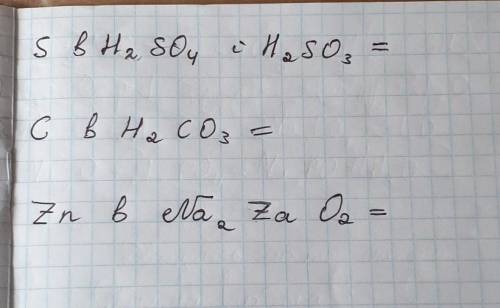 S в H₂SO₄ і H₂SO₃ =
C в H₂CO₃ =
Zn в Na₂ZaO₂ =